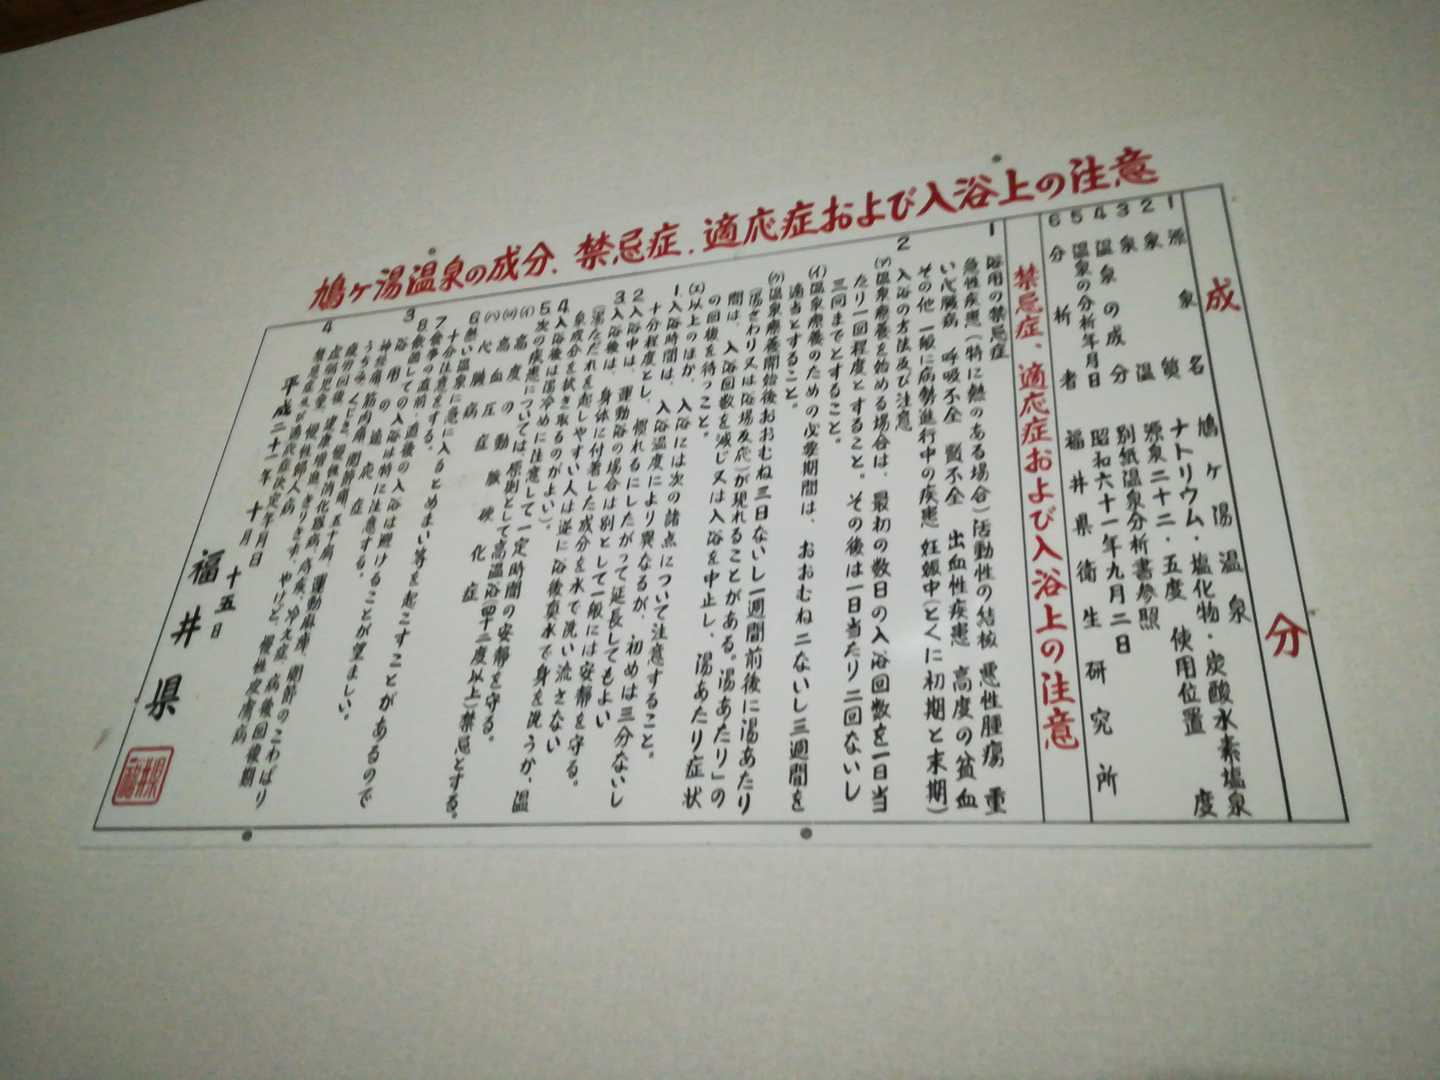 鳩ヶ湯温泉の成分、禁忌症、適応症および入浴上の注意
成分
1 源泉名 鳩ヶ湯温泉
2 泉質 ナトリウム・塩化物・炭酸水素塩泉
3 泉温 源泉二十二・五度 使用位置 度
4 温泉の成分 別紙温泉分析書参照
5 温泉の分析年月日 昭和六十一年九月二日
6 分析者 福井県衛生研究所
禁忌症、適応症および入浴上の注意
1 浴用の禁忌症
急性疾患(特に熱のある場合)活動性の結核 悪性腫瘍 重
い心臓病 呼吸不全 腎不全 出血性疾患 高度の貧血
その他 一般に病勢進行中の疾患 妊娠中(とくに初期と末期)
2 入浴の方法及び注意
(ア)温泉療養を始める場合は、最初の数日の入浴回数を一日当
たり一回程度とすること。その後は一日当たり二回ないし
三回までとすること。
(イ)温泉療養のための必要期間は、おおむね二ないし三週間を
適当とすること。
(ウ)温泉療養開始後おおむね三日ないし一週間前後に湯あたり
(湯さわり又は浴場反応)が現れることがある。「湯あたり」の
間は、入浴回数を減じ又は入浴を中止し、湯あたり症状
の回復を待つこと。
(エ)以上のほか、入浴には次の諸点について注意すること。
1 入浴時間は、入浴温度により異なるが、初めは三分ないし
十分程度とし、慣れるにしたがって延長してもよい
2 入浴中は、運動浴の場合は別として一般には安静を守る。
3 入浴後は、身体に付着した成分を水で洗い流さない
(湯ただれを起しやすい人は逆に浴後真水で身を洗うか、温
泉成分を拭き取るのがよい)。
4 入浴後は湯冷めに注意して一定時間の安静を守る。
5 次の疾患については、原則として高温浴(四十二度以上)禁忌とする。
(イ)高度の動脈硬化症
(ロ)高血圧症
(ハ)心臓病
6 熱い温泉に急に入るとめまい等を起こすことがあるので
十分注意をする。
7 食事の直前、直後の入浴は避けることが望ましい。
8 飲酒しての入浴は特に注意する。
3 浴用の適応症
神経痛、筋肉痛、関節痛、五十肩、運動麻痺、関節のこわばり
うちみ、くじき、慢性消化器病、痔疾、冷え症、病後回復期
疲労回復、健康増進、きりきず、やけど、慢性皮膚病
虚弱児童、慢性婦人病
4 禁忌症及び適応症決定年月日
平成二十一年 十月 十五日
福井県